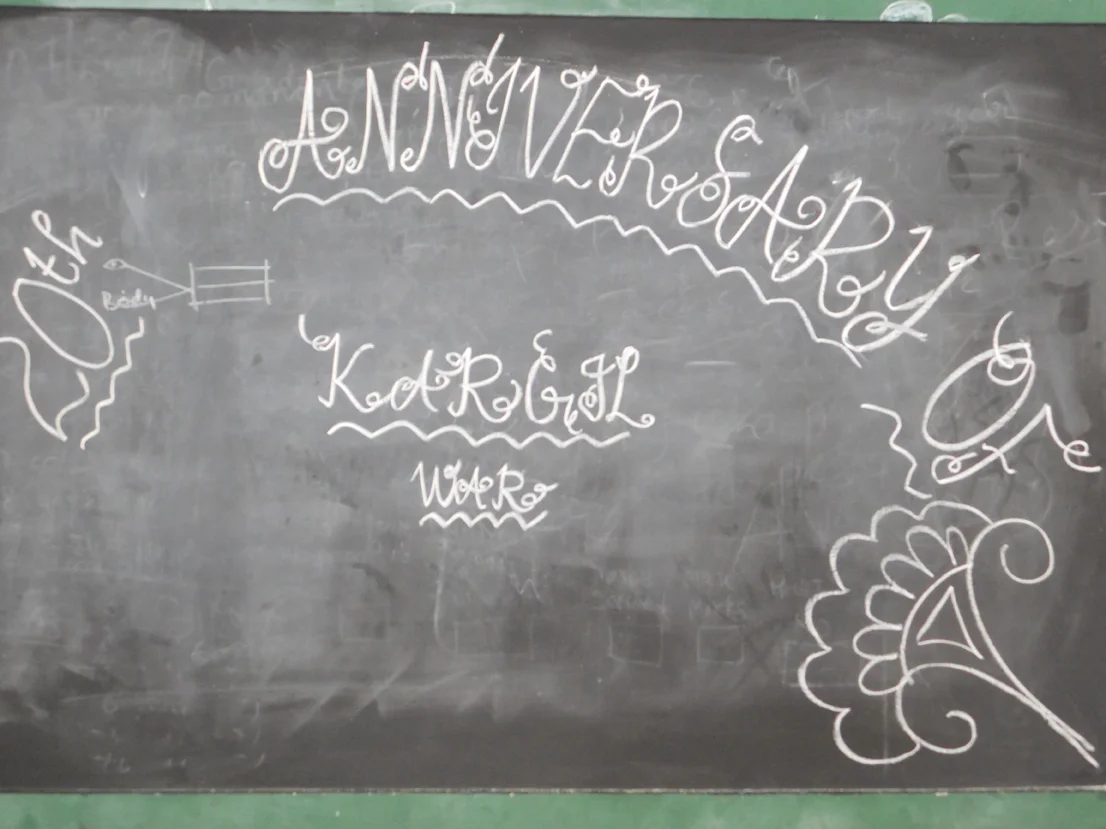 0th ANNIVERSARY Of
Body
KARGIL
WAR